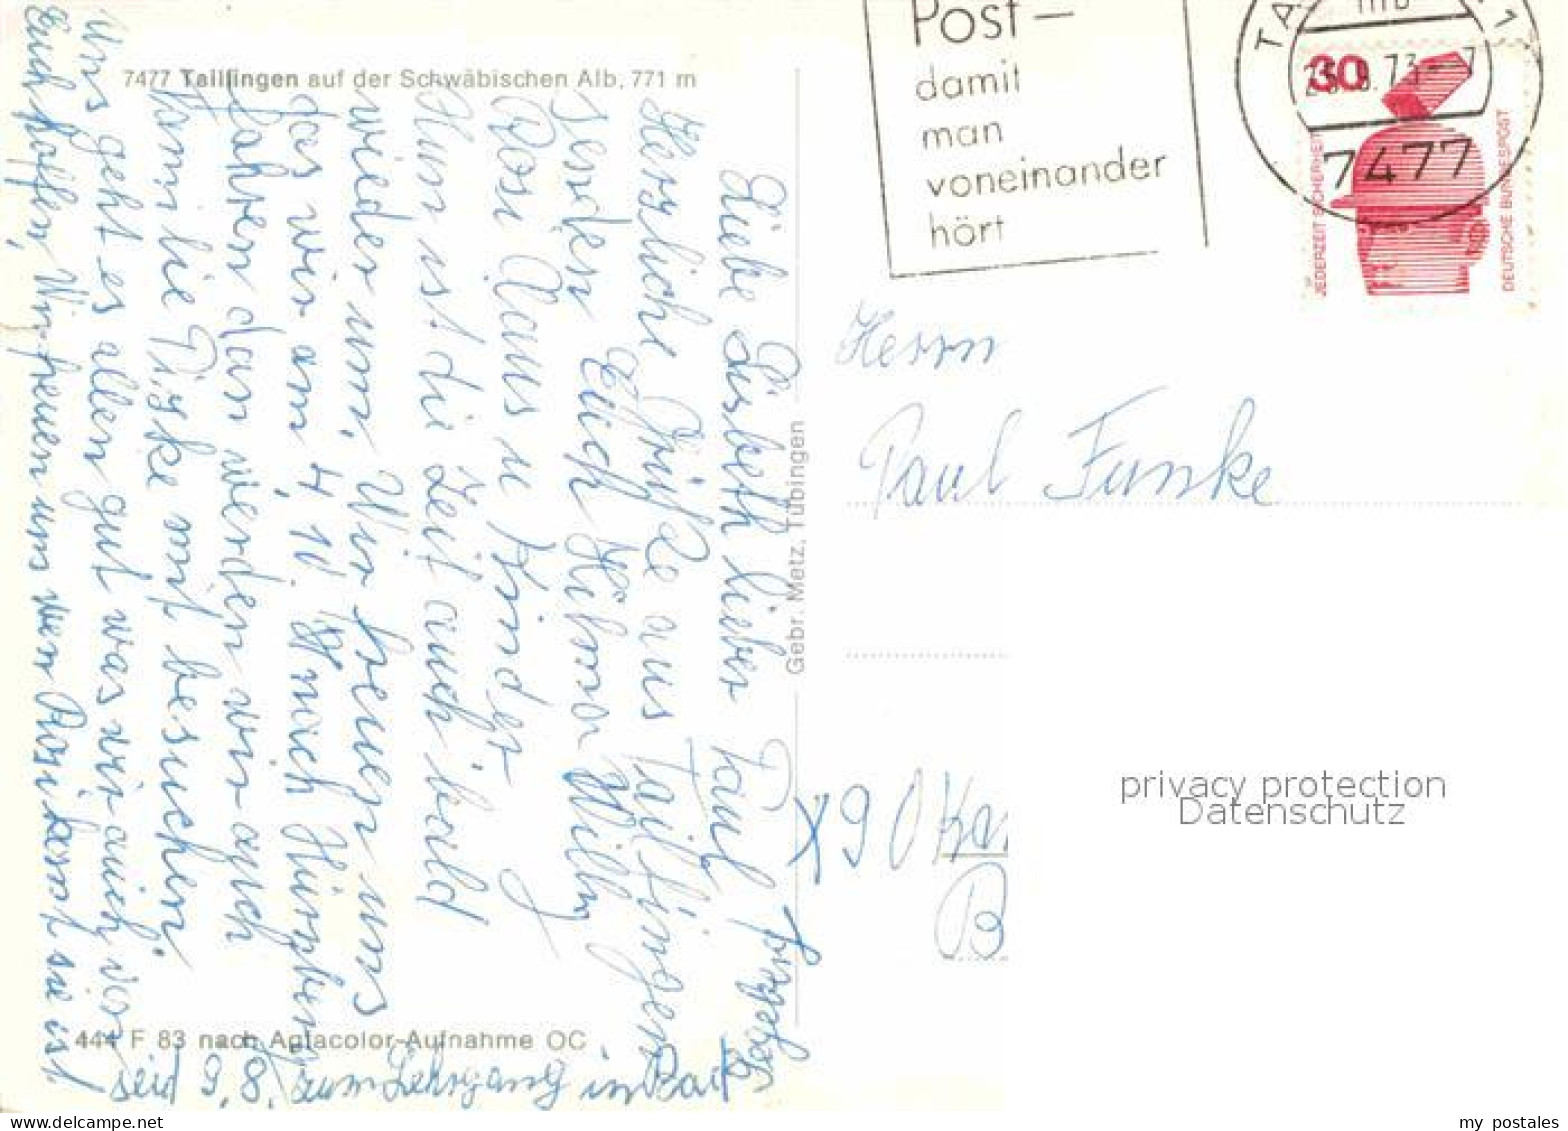 7477 Tailfingen auf der Schwäbischen Alb, 771 m
Liebe Lisbeth lieber Paul
Herzliche Grüße aus Tailfingen
senden Euch Helmar Willy
Rosi Claus u Kinder
Nun ist die Zeit auch bald
wieder um. Wir freuen uns
das wir am 4. 10. nach Nürnberg
fahren dan werden wir auch
Familie Tiske mit besuchen.
Uns geht es allen gut was wir auch von
Euch hoffen, Wir freuen uns wen Rosi komt sie ist
seid 9. 8. zum Lehrgang in Bad
444 F 83 nach Agfacolor-Aufnahme OC
Gebr. Metz, Tübingen
Post –
damit
man
voneinander
hört
30
7477
JEDERZEIT SICHERHEIT
DEUTSCHE BUNDESPOST
Herrn
Paul Funke
X90
B
privacy protection
Datenschutz
my postales